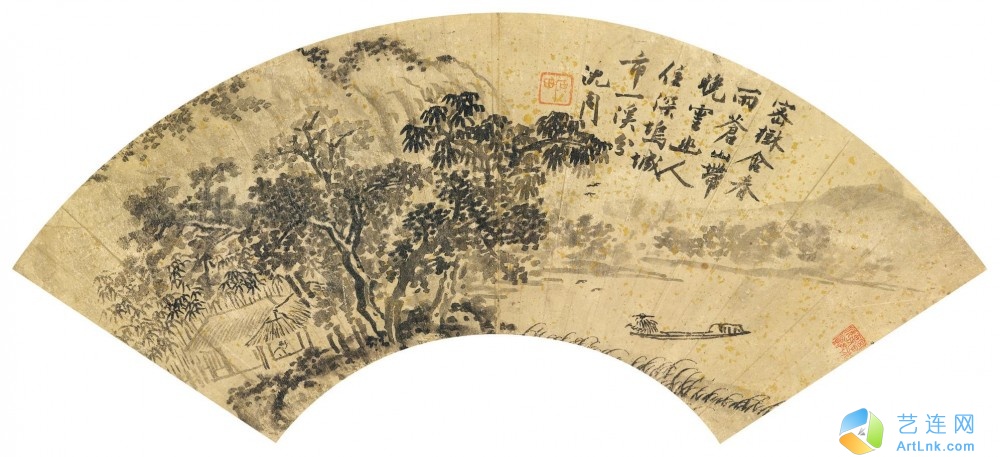 密樹含春
雨蒼山帶
晚雲幽人
住深塢城
市一溪分
沈周
艺连网
ArtLnk.com